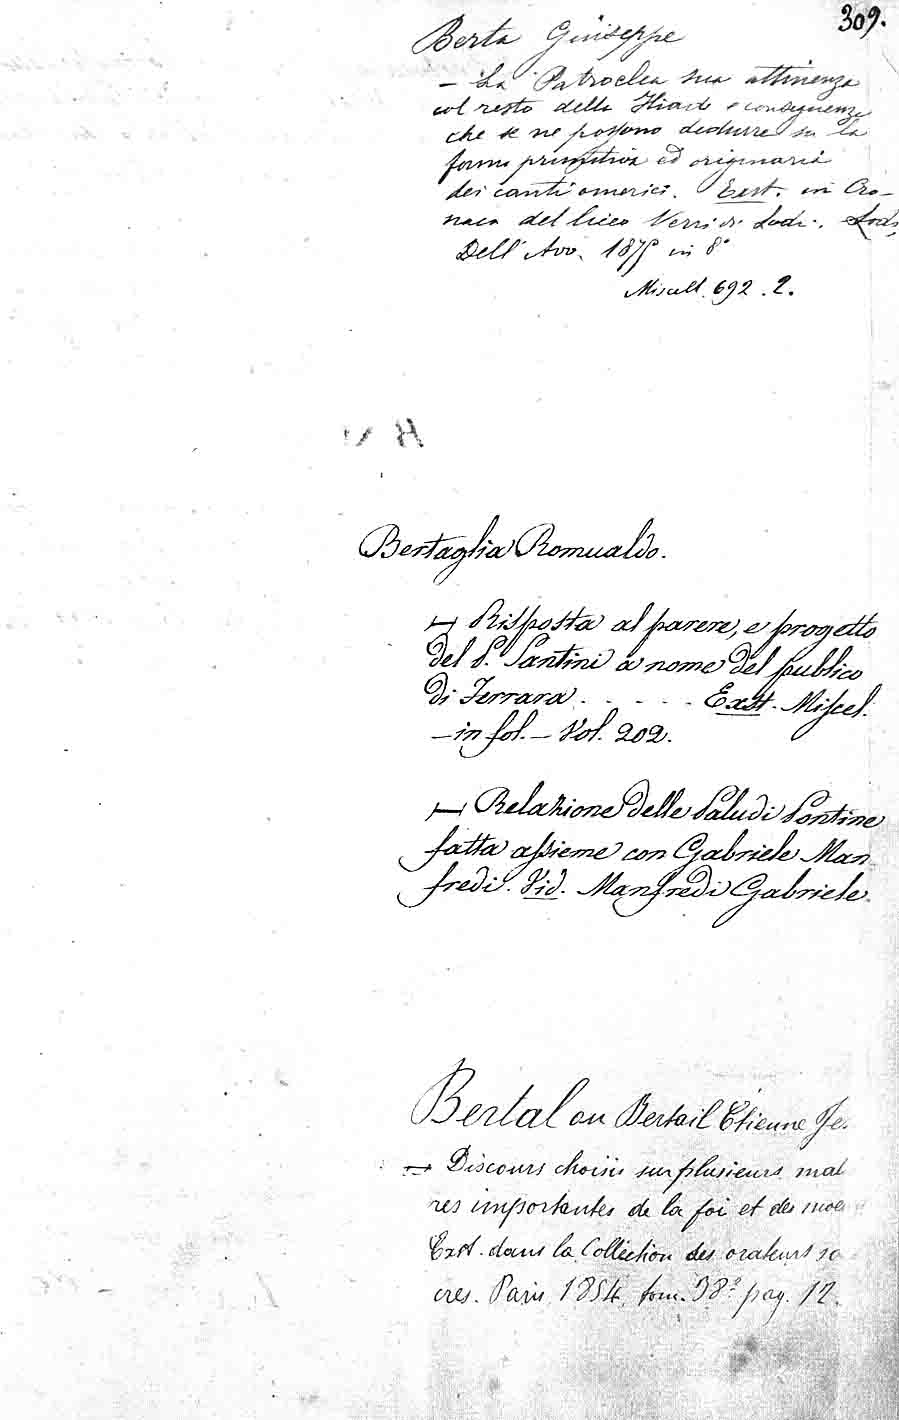 309.
Berta Giuseppe
– La Patroclea sua attinenza
col resto della Iliade e conseguenze
che se ne possono dedurre su la
forma primitiva ed originaria
dei canti omerici. Exst. in Cro-
naca del liceo Verri di Lodi. Lodi,
Dell' Avo. 1875 in 8°
Miscell. 692. 2.
Bertaglia Romualdo.
– Risposta al parere, e progetto
del P. Santini a nome del publico
di Ferrara . . . . . Exst. Miscel.
– in fol. – Vol. 202.
– Relazione delle Paludi Pontine
fatta assieme con Gabriele Man-
fredi. Vid. Manfredi Gabriele.
Bertal ou Bertail Etienne Je.
– Discours choisis sur plusieurs mat
res importantes de la foi et des moe
Exst. dans la Collection des orateurs sa
cres. Paris, 1854, tom. 38° pag. 12.